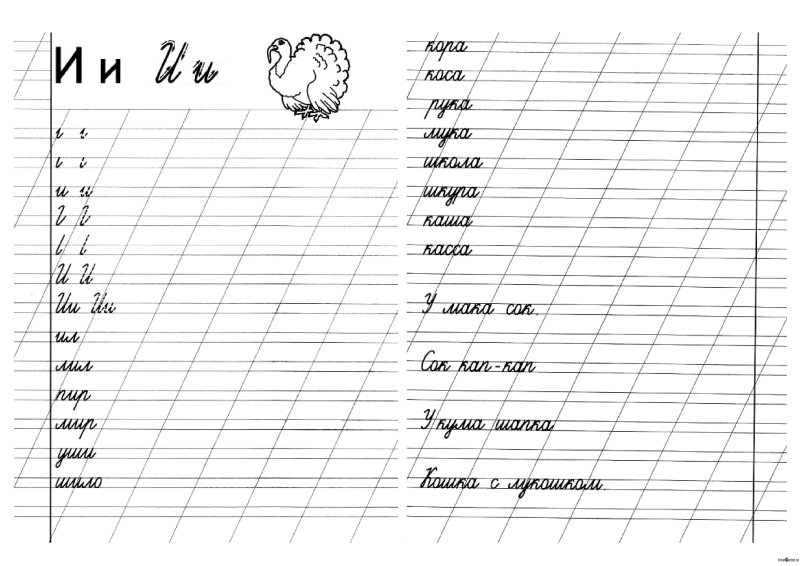 И и И и
г г
ι ι
и и
Г Г
l l
И И
Ии Ии
ил
мил
пир
мир
уши
шило
кора
коса
рука
мука
школа
шкура
каша
касса
У мака сок.
Сок кап-кап
У кума шапка
Кошка с лукошком.